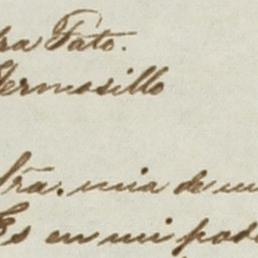 ra Fato.
Hermosillo
Sra. mia de m
Es en mi pod